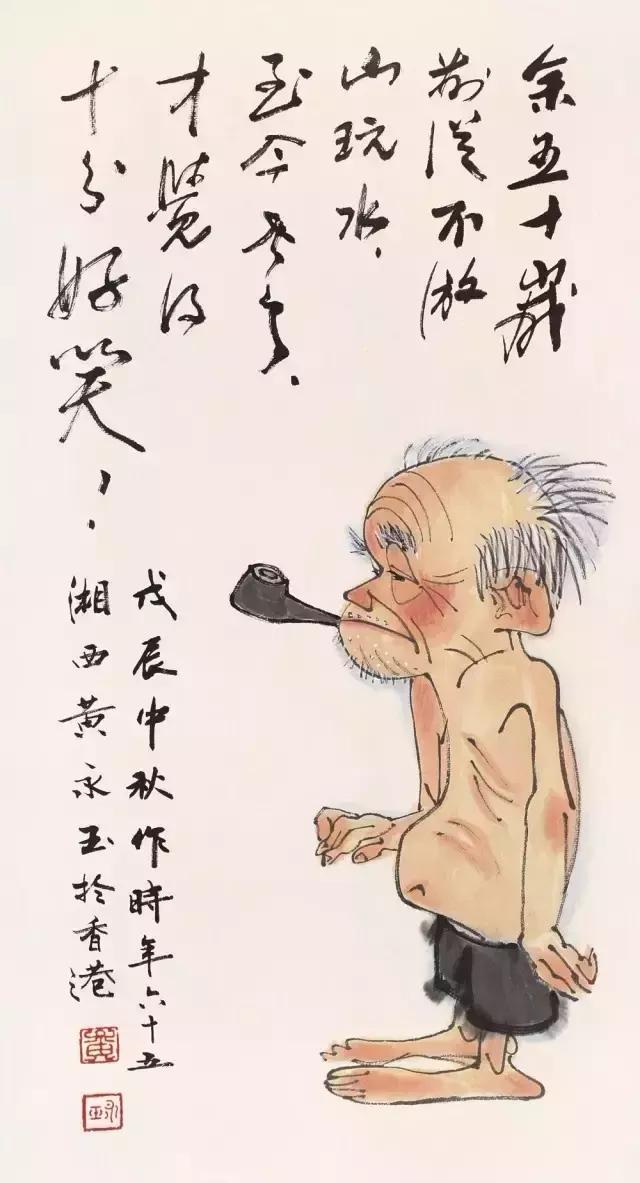 余五十歲
前從不游
山玩水、
至今老矣、
才覺得
十分好笑、
戊辰中秋作時年六十五
湘西黃永玉於香港
黃
永玉